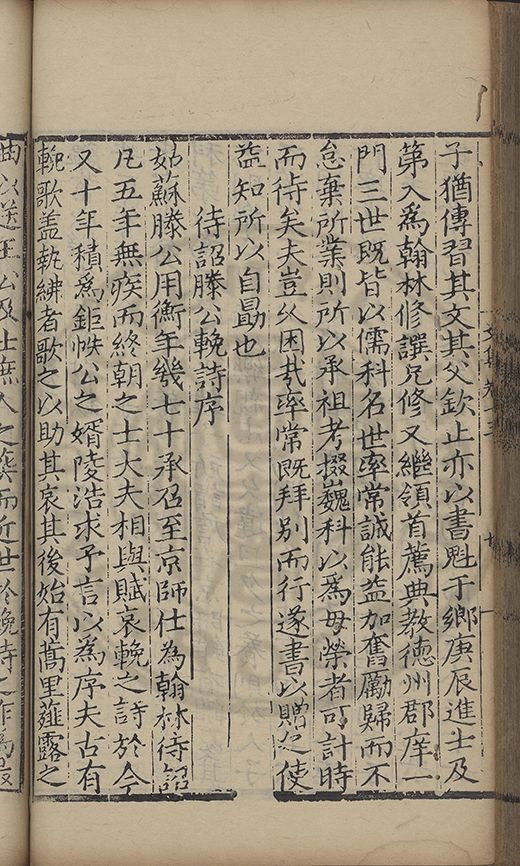 子猶傳習其文其父欽止亦以書魁于鄉庚辰進士及
第入爲翰林修譔兄修又繼領首薦典教徳州郡庠一
門三世既皆以儒科名世率常誠能益加奮勵歸而不
怠棄所業則所以承祖考掇巍科以爲母榮者可計時
而待矣夫豈乆困㢤率常既拜別而行遂書以贈之使
益知所以自勗也
待詔滕公輓詩序
姑蘇滕公用衡年幾七十承召至京師仕為翰林待詔
凡五年無疾而終朝之士大夫相與賦哀輓之詩於今
又十年積爲鉅帙公之婿陵浩求予言以爲序夫古有
輓歌盖執紼者歌之以助其哀其後始有蒿里薤露之
曲以送王公及士庶人之 而近世 輓詩之作爲